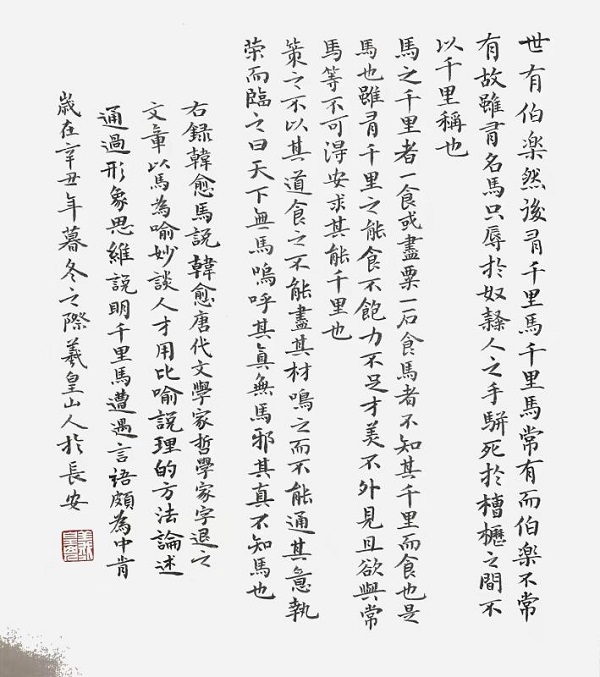 世有伯樂然後有千里馬千里馬常有而伯樂不常
有故雖有名馬只辱於奴隸人之手駢死於槽櫪之間不
以千里稱也
馬之千里者一食或盡粟一石食馬者不知其千里而食也是
馬也雖有千里之能食不飽力不足才美不外見且欲與常
馬等不可得安求其能千里也
策之不以其道食之不能盡其材鳴之而不能通其意執
策而臨之曰天下無馬嗚呼其真無馬邪其真不知馬也
右録韓愈馬說韓愈唐代文學家哲學家字退之
文章以馬為喻妙談人才用比喻說理的方法論述
通過形象思維說明千里馬遭遇言語頗為中肯
歲在辛丑年暮冬之際羲皇山人於長安